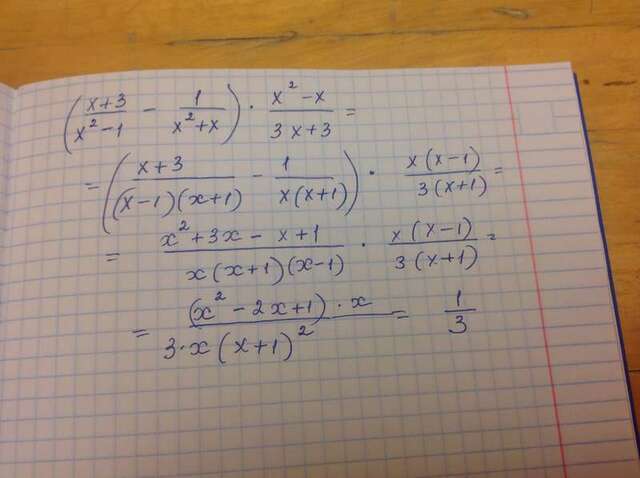 (x+3/x²-1 - 1/x²+x) · x²-x/3x+3 =
= (x+3/(x-1)(x+1) - 1/x(x+1)) · x(x-1)/3(x+1) =
= x²+3x-x+1/x(x+1)(x-1) · x(x-1)/3(x+1) =
= (x²-2x+1)·x/3·x(x+1)² = 1/3